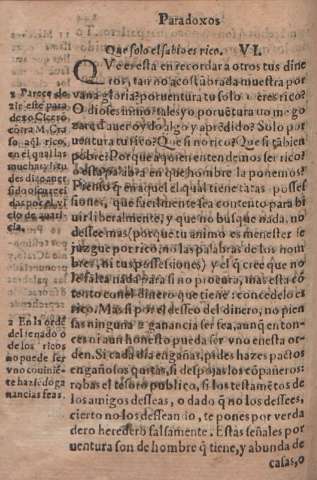 Paradoxos
Que solo el sabio es rico. VI.
QVe eres tã en recordar a otros tus dine
ros, tan no acostũbrada muestra por
vana gloria? por uentura tu solo eres rico?
O dioses inmortales yo por uẽtura no me go
zaré d auer oydo algo y aprẽdido? Solo por
uentura tu rico? Que si no rico? Que si tãbien
pobre? Porque a quien entendemos ser rico?
o esta palabra en que hombre la ponemos?
Pienso q̃ en aquel el qual tiene tãtas posses
siones, que facilmente sea contento para bi
uir liberalmente, y que no busque nada, no
dessee mas (porque tu animo es menester se
juzgue por rico, no las palabras de los hom
bres, ni tus possessiones) y el q̃ cree que no
le falta nada para si no procura, mas está cõ
tento con el dinero que tiene: concedolo es
rico. Mas si por el desseo del dinero, no pien
sas ninguna ganancia ser fea, aunq̃ en ton-
ces ni aun honesto pueda ser vno en esta or-
den. Si cada dia engañas, pides hazes pactos
engañosos quitas, si despojas los cõpañeros:
robas el tesoro publico, si los testamẽtos de
los amigos desseas, o dado q̃ no los dessees,
cierto no los dessean io, te pones por verda
dero heredero falsamente. Estas señales por
uentura son de hombre q̃ tiene, y abunda de
casas, o
1 Parece de
zir este para
doxo Cicerõ
cõtra M. Cra
so aql̃ rico,
en el qual las
muchas virtu
des dizo aper
sido o scureci
das por el vi
cio de auari-
cia.
2 En la ordẽ
del senado o
de los ricos
no puede ser
vno conuiniẽ
te haziẽdo ga
nancias feas.